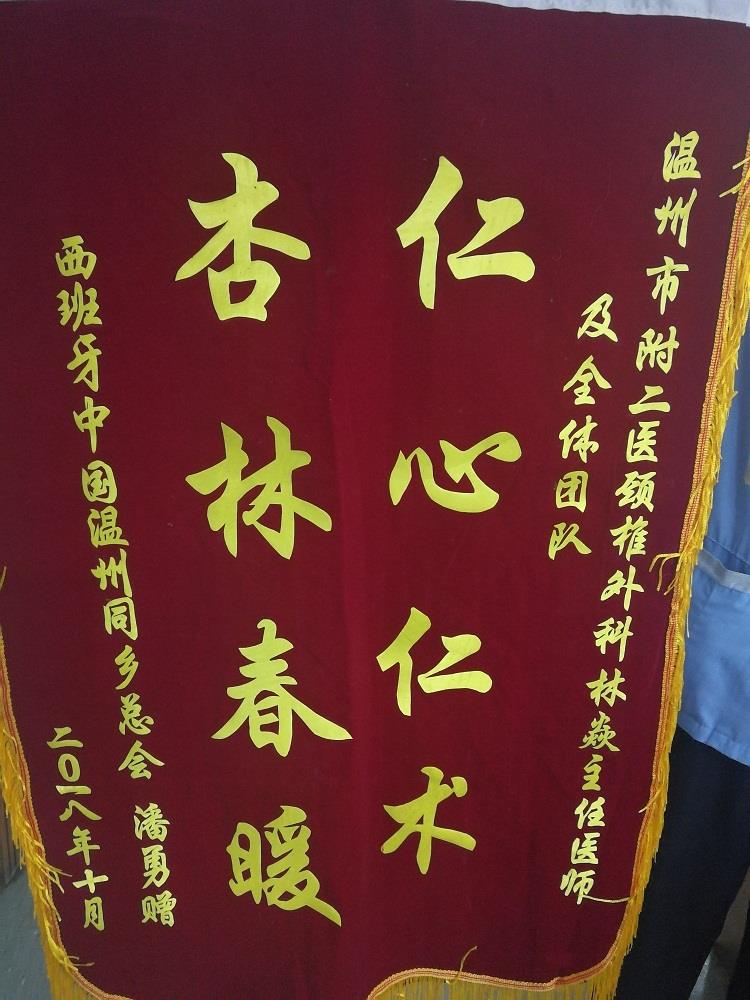 温州市附二医颈椎外科林焱主任医师
及全体团队
仁心仁术
杏林春暖
西班牙中国温州同乡总会 潘勇赠
二〇一八年十月